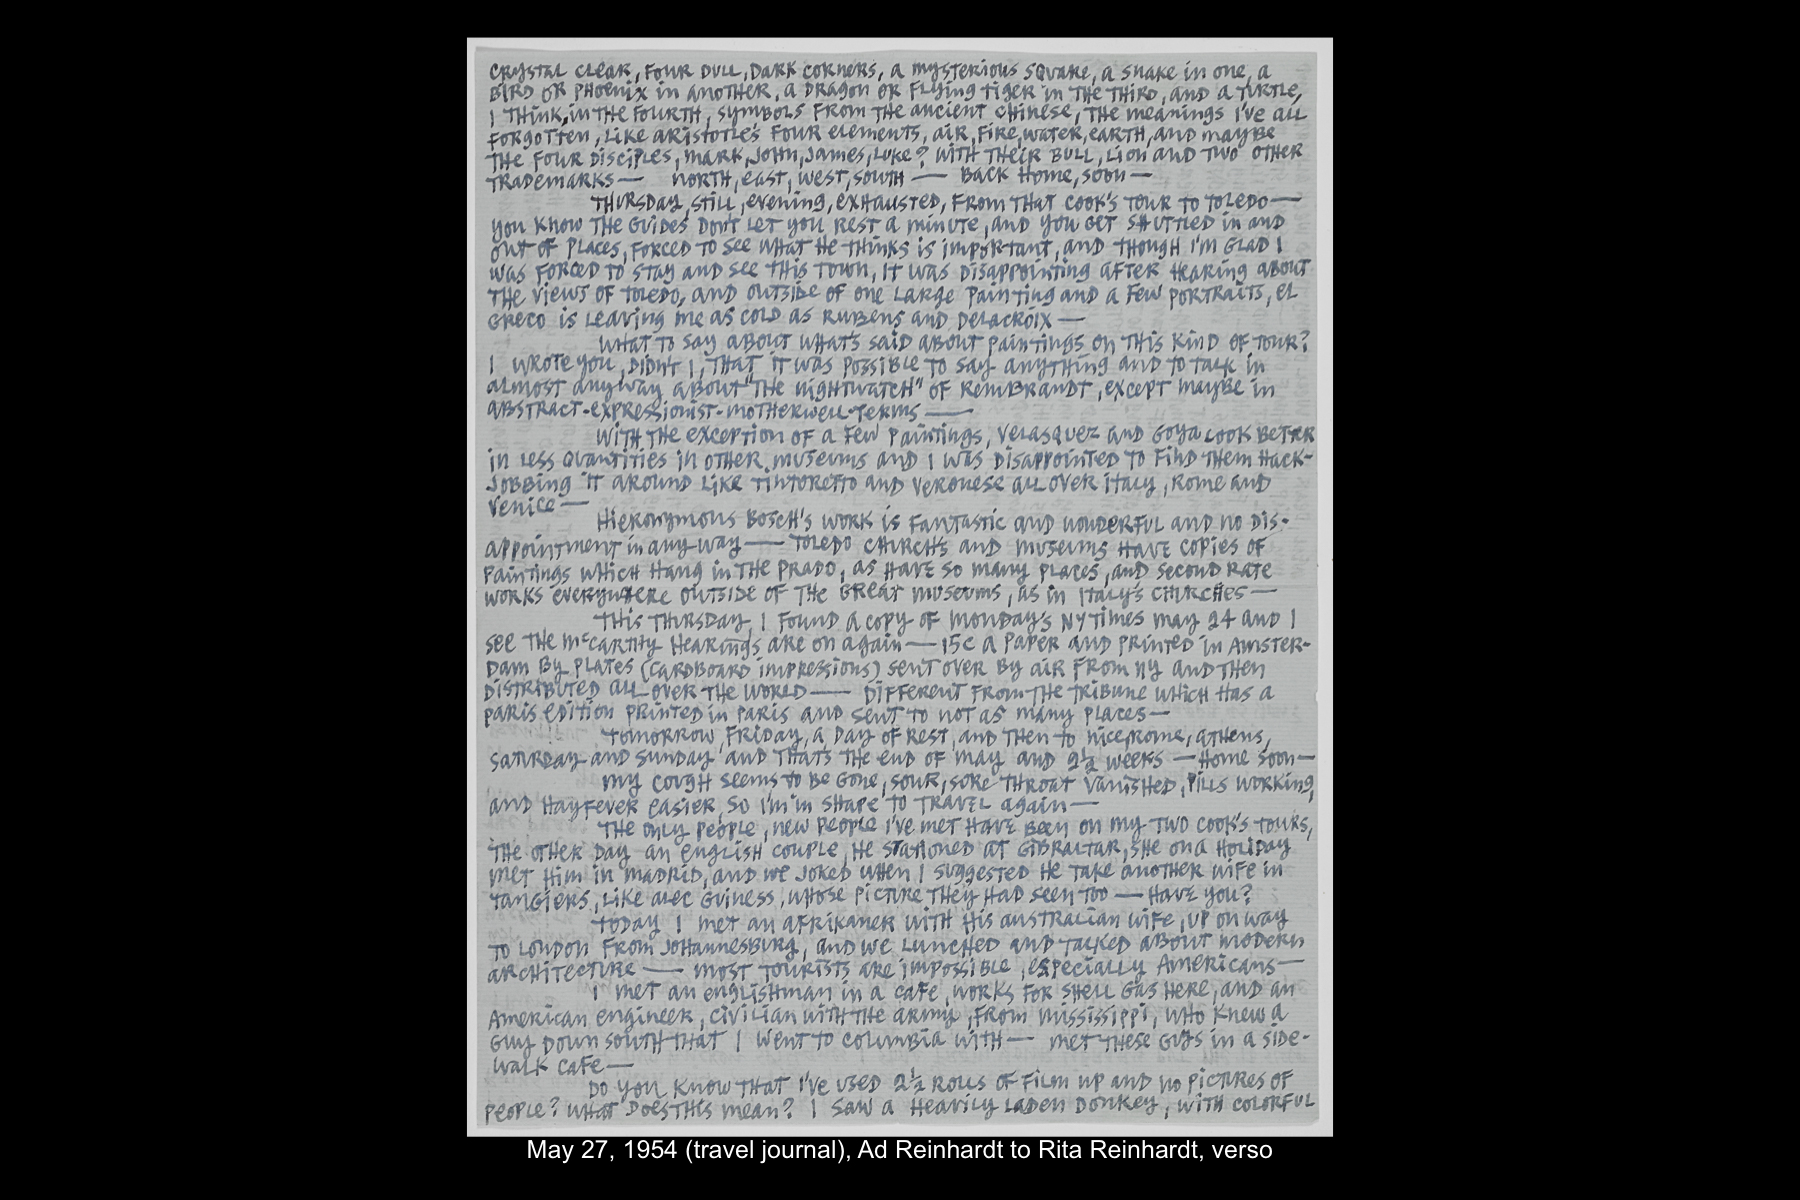 CRYSTAL CLEAR, FOUR DULL, DARK CORNERS, A MYSTERIOUS SQUARE, A SNAKE IN ONE, A
BIRD OR PHOENIX IN ANOTHER, A DRAGON OR FLYING TIGER IN THE THIRD, AND A TURTLE,
I THINK, IN THE FOURTH, SYMBOLS FROM THE ANCIENT CHINESE, THE MEANINGS I'VE ALL
FORGOTTEN, LIKE ARISTOTLE'S FOUR ELEMENTS, AIR, FIRE, WATER, EARTH, AND MAYBE
THE FOUR DISCIPLES, MARK, JOHN, JAMES, LUKE? WITH THEIR BULL, LION AND TWO OTHER
TRADEMARKS — NORTH, EAST, WEST, SOUTH — BACK HOME, SOON —
THURSDAY, STILL, EVENING, EXHAUSTED, FROM THAT COOK'S TOUR TO TOLEDO —
YOU KNOW THE GUIDES DON'T LET YOU REST A MINUTE, AND YOU GET SHUTTLED IN AND
OUT OF PLACES, FORCED TO SEE WHAT HE THINKS IS IMPORTANT, AND THOUGH I'M GLAD I
WAS FORCED TO STAY AND SEE THIS TOWN, IT WAS DISAPPOINTING AFTER HEARING ABOUT
THE VIEWS OF TOLEDO, AND OUTSIDE OF ONE LARGE PAINTING AND A FEW PORTRAITS, EL
GRECO IS LEAVING ME AS COLD AS RUBENS AND DELACROIX —
WHAT TO SAY ABOUT WHAT'S SAID ABOUT PAINTINGS ON THIS KIND OF TOUR?
I WROTE YOU, DIDN'T I, THAT IT WAS POSSIBLE TO SAY ANYTHING AND TO TALK IN
ALMOST ANYWAY ABOUT "THE NIGHTWATCH" OF REMBRANDT, EXCEPT MAYBE IN
ABSTRACT-EXPRESSIONIST-MOTHERWELL-TERMS —
WITH THE EXCEPTION OF A FEW PAINTINGS, VELASQUEZ AND GOYA LOOK BETTER
IN LESS QUANTITIES IN OTHER MUSEUMS AND I WAS DISAPPOINTED TO FIND THEM HACK-
JOBBING IT AROUND LIKE TINTORETTO AND VERONESE ALL OVER ITALY, ROME AND
VENICE —
HIERONYMOUS BOSCH'S WORK IS FANTASTIC AND WONDERFUL AND NO DIS-
APPOINTMENT IN ANY WAY — TOLEDO CHURCHS AND MUSEUMS HAVE COPIES OF
PAINTINGS WHICH HANG IN THE PRADO, AS HAVE SO MANY PLACES, AND SECOND RATE
WORKS EVERYWHERE OUTSIDE OF THE GREAT MUSEUMS, AS IN ITALY'S CHURCHES —
THIS THURSDAY, I FOUND A COPY OF MONDAY'S NY TIMES MAY 24 AND I
SEE THE McCARTHY HEARINGS ARE ON AGAIN — 15¢ A PAPER AND PRINTED IN AMSTER-
DAM BY PLATES (CARDBOARD IMPRESSIONS) SENT OVER BY AIR FROM NY AND THEN
DISTRIBUTED ALL OVER THE WORLD — DIFFERENT FROM THE TRIBUNE WHICH HAS A
PARIS EDITION PRINTED IN PARIS AND SENT TO NOT AS MANY PLACES —
TOMORROW, FRIDAY, A DAY OF REST, AND THEN TO NICE, ROME, ATHENS,
SATURDAY AND SUNDAY AND THAT'S THE END OF MAY AND 2½ WEEKS — HOME SOON —
MY COUGH SEEMS TO BE GONE, SOUR, SORE THROAT VANISHED, PILLS WORKING,
AND HAYFEVER EASIER, SO I'M IN SHAPE TO TRAVEL AGAIN —
THE ONLY PEOPLE, NEW PEOPLE I'VE MET HAVE BEEN ON MY TWO COOK'S TOURS,
THE OTHER DAY AN ENGLISH COUPLE, HE STATIONED AT GIBRALTAR, SHE ON A HOLIDAY
MET HIM IN MADRID, AND WE JOKED WHEN I SUGGESTED HE TAKE ANOTHER WIFE IN
TANGIERS, LIKE ALEC GUINESS, WHOSE PICTURE THEY HAD SEEN TOO — HAVE YOU?
TODAY I MET AN AFRIKANER WITH HIS AUSTRALIAN WIFE, UP ON WAY
TO LONDON FROM JOHANNESBURG, AND WE LUNCHED AND TALKED ABOUT MODERN
ARCHITECTURE — MOST TOURISTS ARE IMPOSSIBLE, ESPECIALLY AMERICANS —
I MET AN ENGLISHMAN IN A CAFE, WORKS FOR SHELL GAS HERE, AND AN
AMERICAN ENGINEER, CIVILIAN WITH THE ARMY, FROM MISSISSIPPI, WHO KNEW A
GUY DOWN SOUTH THAT I WENT TO COLUMBIA WITH — MET THESE GUYS IN A SIDE-
WALK CAFE —
DO YOU KNOW THAT I'VE USED 2½ ROLLS OF FILM UP AND NO PICTURES OF
PEOPLE? WHAT DOES THIS MEAN? I SAW A HEAVILY LADEN DONKEY, WITH COLORFUL
May 27, 1954 (travel journal), Ad Reinhardt to Rita Reinhardt, verso